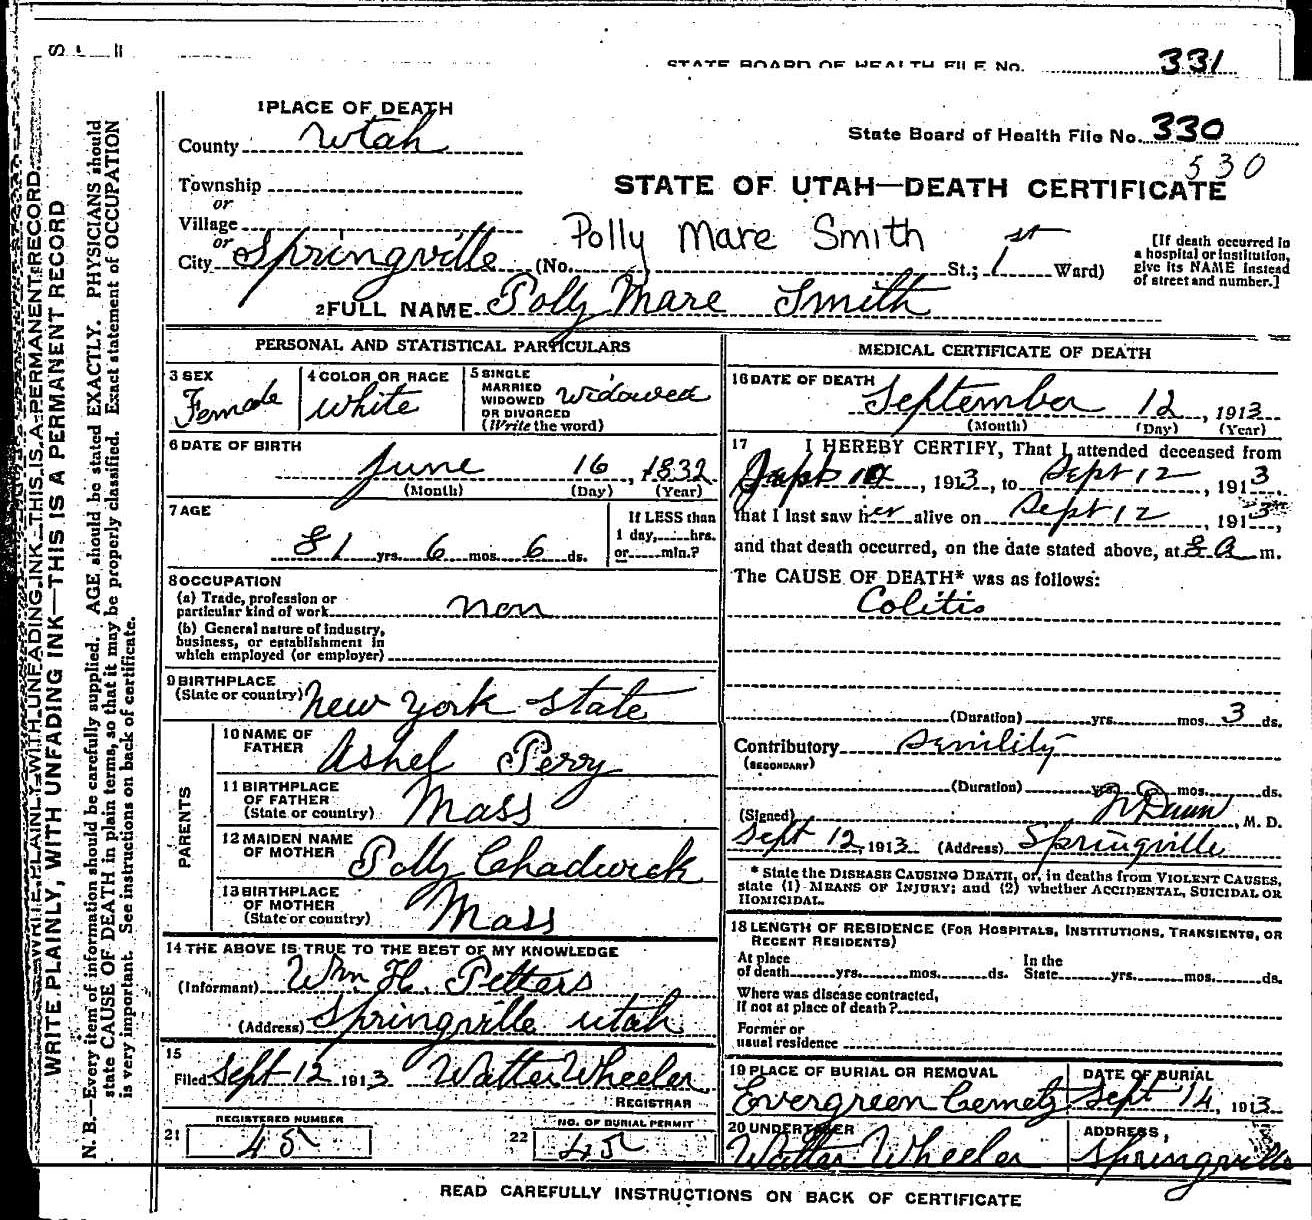 STATE BOARD OF HEALTH FILE No. 331
1 PLACE OF DEATH
County Utah
State Board of Health File No. 330
530
Township
or
STATE OF UTAH—DEATH CERTIFICATE
Village
or
Polly Mare Smith
City Springville (No. St.; 1st Ward)
[If death occurred in
a hospital or institution,
give its NAME instead
of street and number.]
2 FULL NAME Polly Mare Smith
PERSONAL AND STATISTICAL PARTICULARS
3 SEX
Female
4 COLOR OR RACE
White
5 SINGLE
MARRIED
WIDOWED
OR DIVORCED
(Write the word)
Widowed
6 DATE OF BIRTH
June 16, 1832
(Month) (Day) (Year)
7 AGE
81 yrs. 6 mos. 6 ds.
If LESS than
1 day, hrs.
or min.?
8 OCCUPATION
(a) Trade, profession or
particular kind of work non
(b) General nature of industry,
business, or establishment in
which employed (or employer)
9 BIRTHPLACE
(State or country) New York State
PARENTS
10 NAME OF
FATHER
Ashel Perry
11 BIRTHPLACE
OF FATHER
(State or country)
Mass
12 MAIDEN NAME
OF MOTHER
Polly Chadwick
13 BIRTHPLACE
OF MOTHER
(State or country)
Mass
14 THE ABOVE IS TRUE TO THE BEST OF MY KNOWLEDGE
(Informant) Wm. H. Petters
(Address) Springville Utah
15
Filed Sept 12 1913 Walter Wheeler
REGISTRAR
REGISTERED NUMBER
21 45
NO. OF BURIAL PERMIT
22 45
MEDICAL CERTIFICATE OF DEATH
16 DATE OF DEATH
September 12, 1913
(Month) (Day) (Year)
17 I HEREBY CERTIFY, That I attended deceased from
Sept , 1913, to Sept 12, 1913.
that I last saw her alive on Sept 12, 1913,
and that death occurred, on the date stated above, at 8 a m.
The CAUSE OF DEATH* was as follows:
Colitis
(Duration) yrs. mos. 3 ds.
Contributory Senility
(SECONDARY)
(Duration) yrs. mos. ds.
(Signed) Dunn, M. D.
Sept 12, 1913 (Address) Springville
* State the DISEASE CAUSING DEATH, or, in deaths from VIOLENT CAUSES,
state (1) MEANS OF INJURY; and (2) whether ACCIDENTAL, SUICIDAL OR
HOMICIDAL.
18 LENGTH OF RESIDENCE (FOR HOSPITALS, INSTITUTIONS, TRANSIENTS, OR
RECENT RESIDENTS)
At place
of death yrs. mos. ds.
In the
State yrs. mos. ds.
Where was disease contracted,
if not at place of death?
Former or
usual residence
19 PLACE OF BURIAL OR REMOVAL
Evergreen
DATE OF BURIAL
Sept 14, 1913
20 UNDERTAKER
Walter Wheeler
ADDRESS,
Springville
READ CAREFULLY INSTRUCTIONS ON BACK OF CERTIFICATE
WRITE PLAINLY, WITH UNFADING INK—THIS IS A PERMANENT RECORD.
WRITE PLAINLY, WITH UNFADING INK—THIS IS A PERMANENT RECORD
N. B.—Every item of information should be carefully supplied. AGE should be stated EXACTLY. PHYSICIANS should
state CAUSE OF DEATH in plain terms, so that it may be properly classified. Exact statement of OCCUPATION
is very important. See instructions on back of certificate.